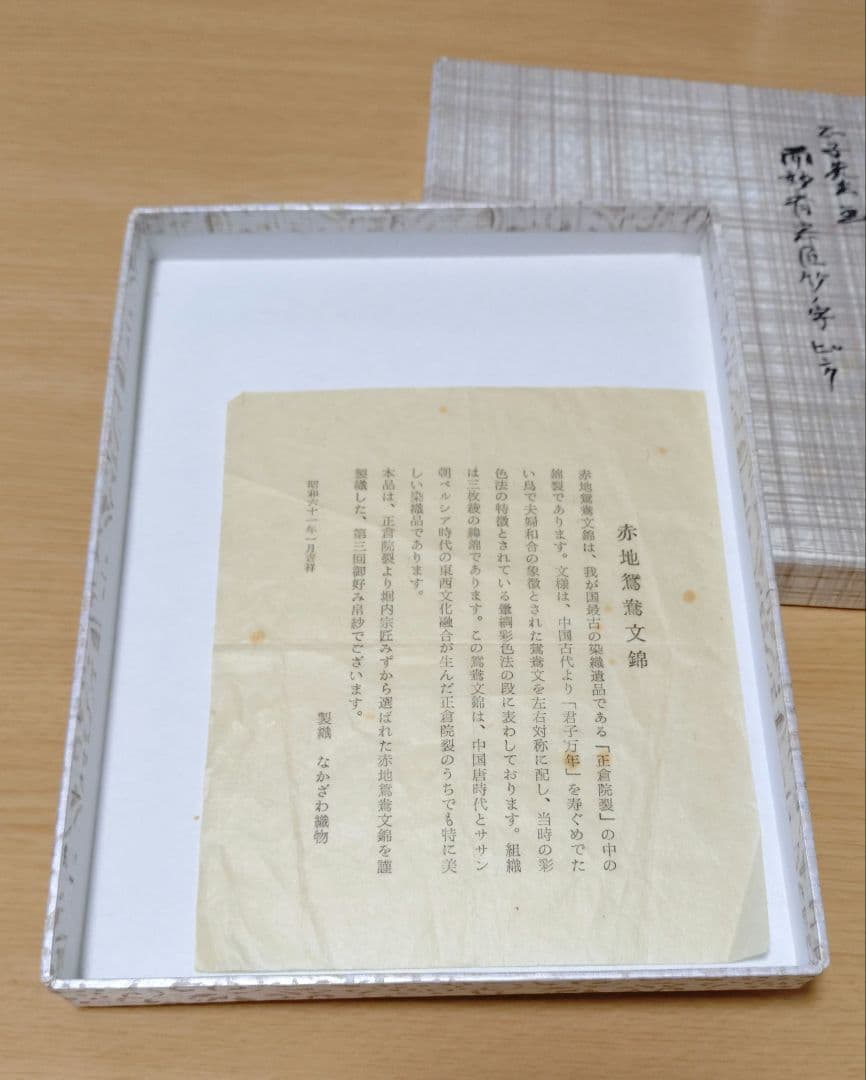 赤地鴛鴦文錦
赤地鴛鴦文錦は、我が国最古の染織遺品である「正倉院裂」の中の
錦製であります。文様は、中国古代より「君子万年」を寿ぐめでた
い鳥で夫婦和合の象徴とされた鴛鴦文を左右対称に配し、当時の彩
色法の特徴とされている暈繝彩色法の段に表わしております。組織
は三枚綾の緯錦であります。この鴛鴦文錦は、中国唐時代とササン
朝ペルシア時代の東西文化融合が生んだ正倉院裂のうちでも特に美
しい染織品であります。
本品は、正倉院裂より堀内宗匠みずから選ばれた赤地鴛鴦文錦を謹
製織した、第三回御好み帛紗でございます。
昭和六十一年一月吉祥
製織 なかざわ織物
ピンク